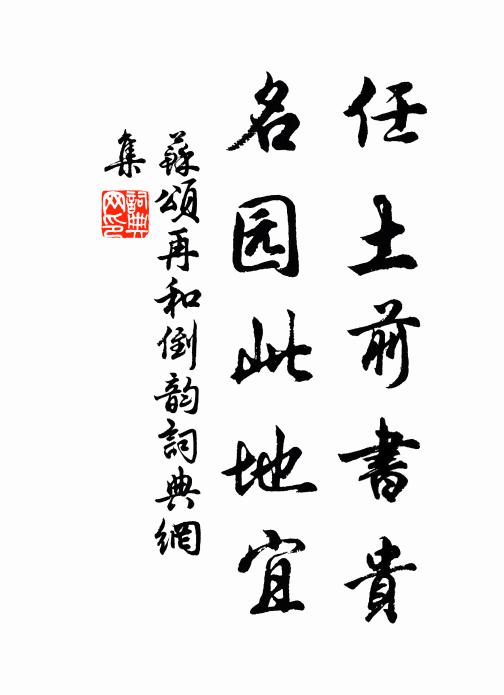 任土前書貴
名园此地宜
蘇頌再和倒韵詞典網
集
詞典网印